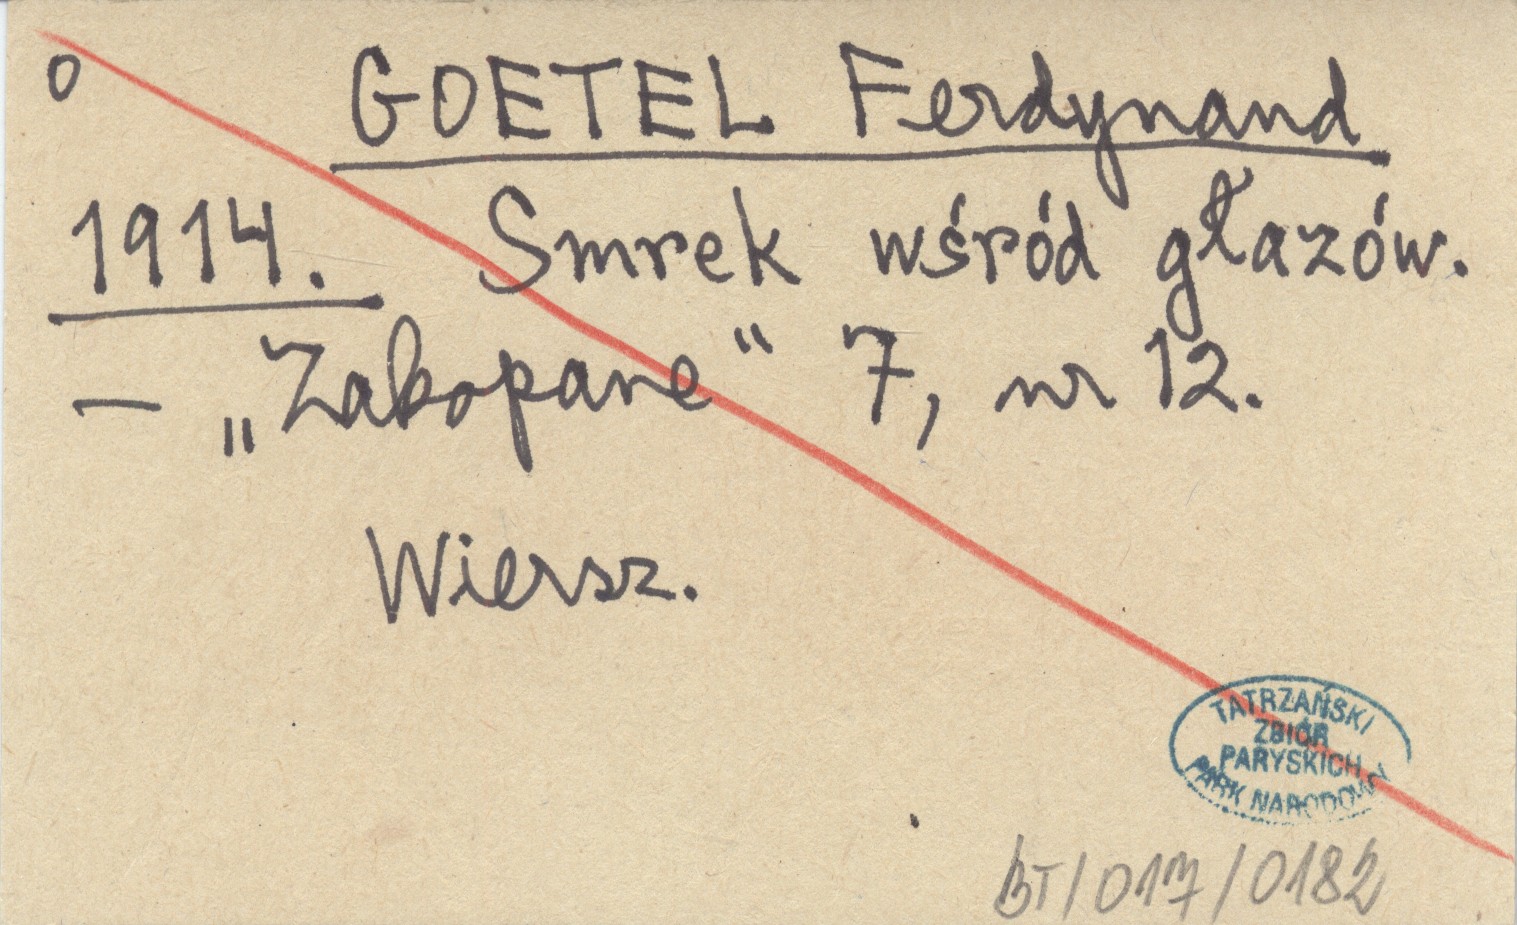 o
GOETEL Ferdynand
1914. Smrek wśród głazów.
— „Zakopane“ 7, nr 12.
Wiersz.
TATRZAŃSKI
ZBIÓR
PARYSKICH
PARK NARODOWY
BT/017/0182